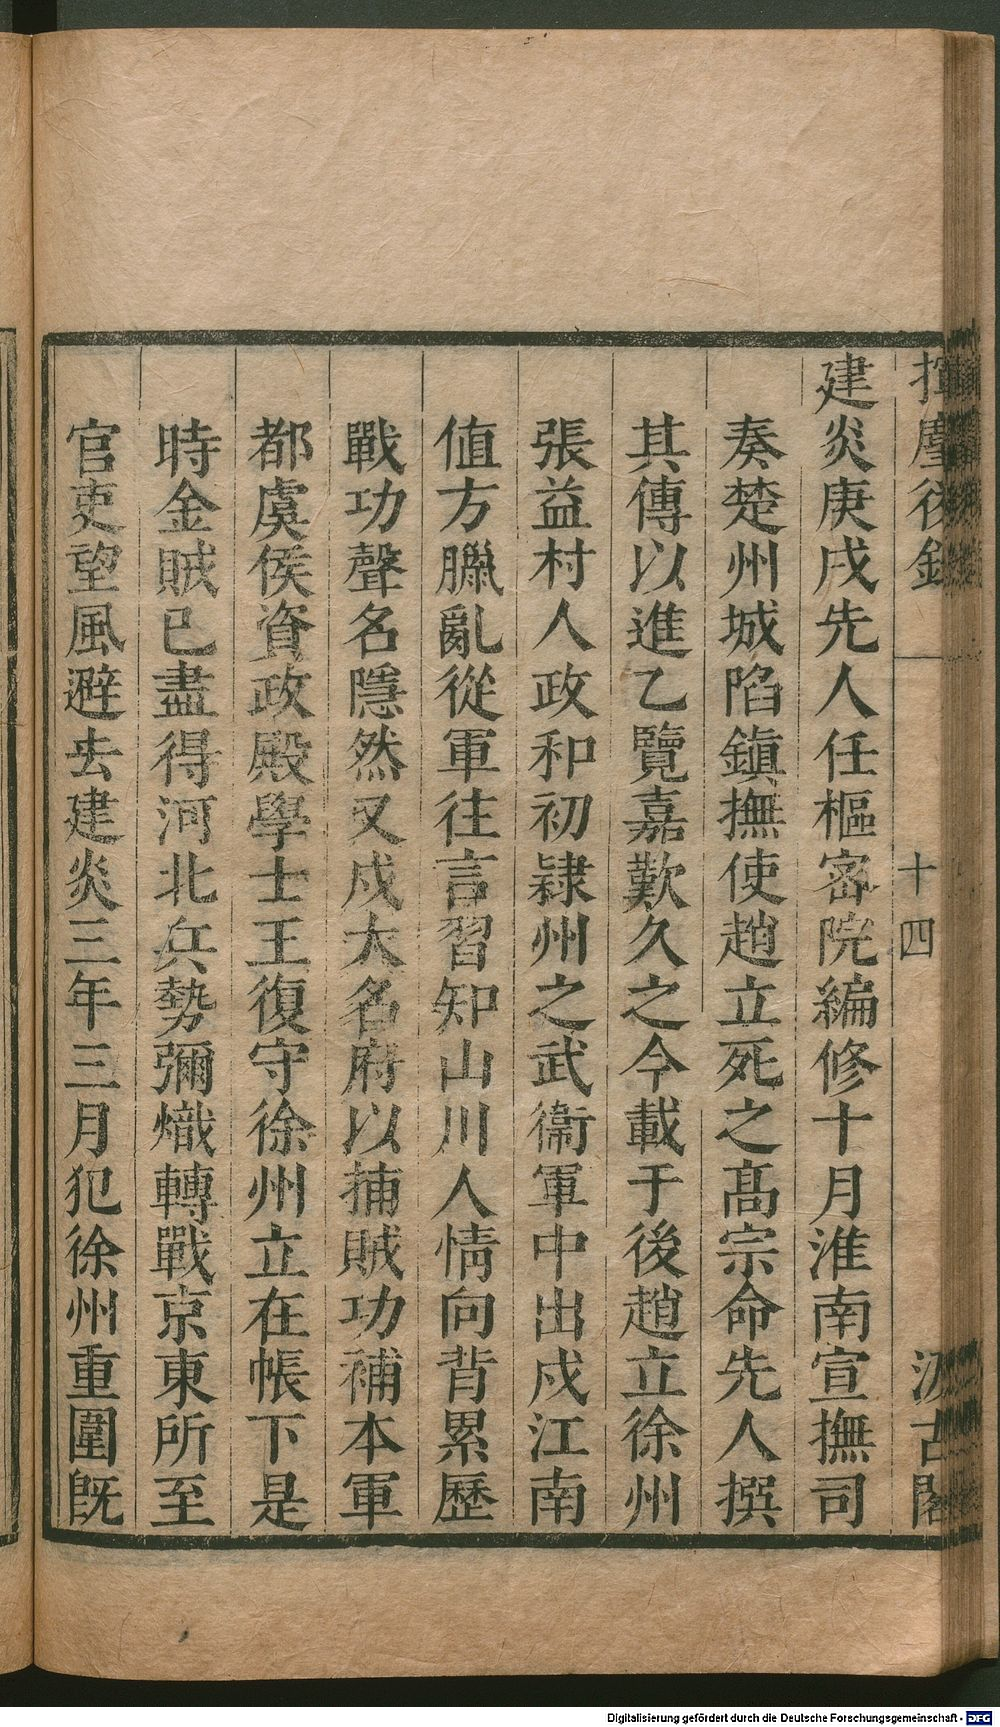 揮麈後錄 十四 汲古閣
建炎庚戌先人任樞密院編修十月淮南宣撫司
奏楚州城陷鎮撫使趙立死之髙宗命先人撰
其傳以進乙覽嘉歎久之今載于後趙立徐州
張益村人政和初隷州之武衞軍中出戍江南
値方臘亂從軍往言習知山川人情向背累歷
戰功聲名隱然又戍大名府以捕賊功補本軍
都虞侯資政殿學士王復守徐州立在帳下是
時金賊已盡得河北兵勢彌熾轉戰京東所至
官吏望風避去建炎三年三月犯徐州重圍旣
Digitalisierung gefördert durch die Deutsche Forschungsgemeinschaft - DFG